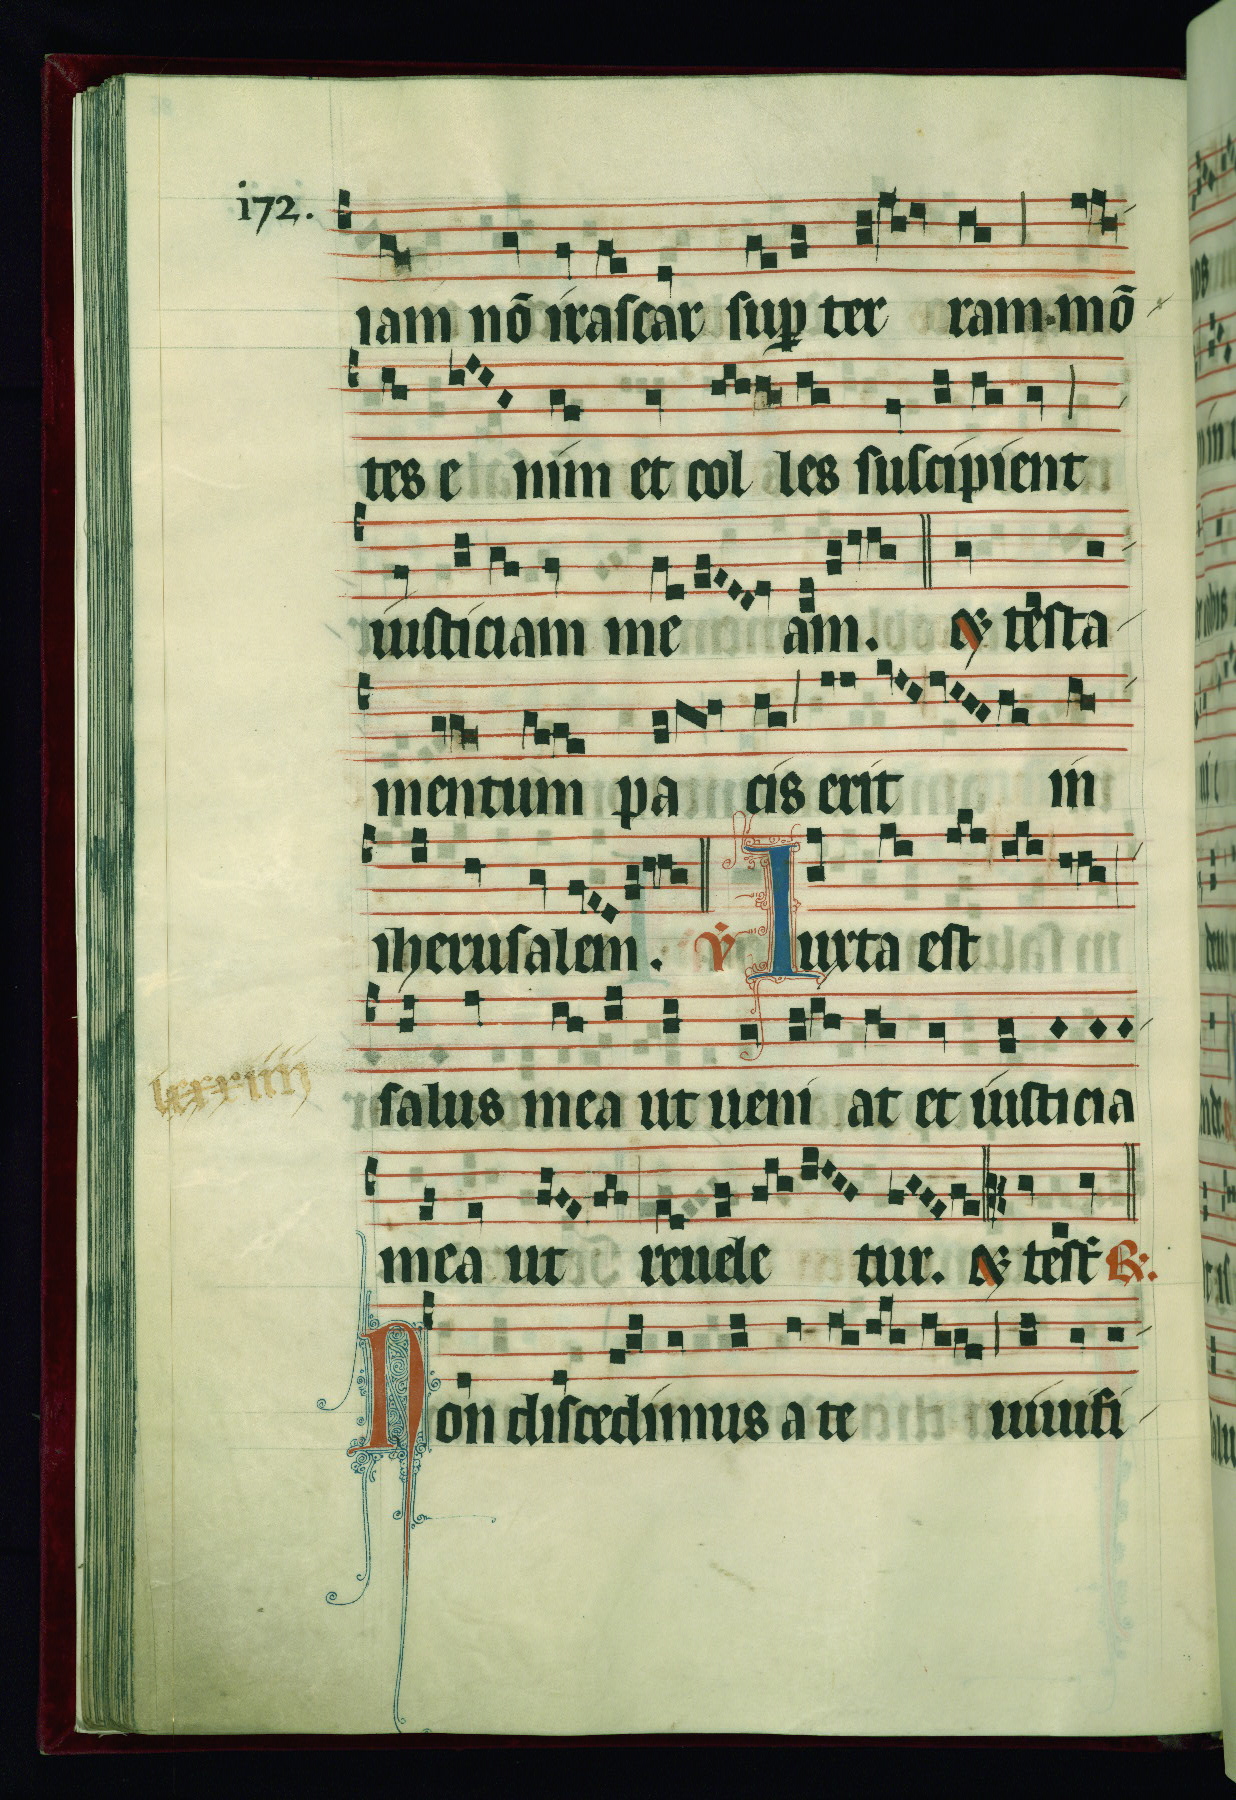 i72.
iam nō irascar sup ter ram. mō
tes e nim et col les suscipient
iusticiam me am. Et testa
mentum pa cis erit in
iherusalem. V Iuxta est
salus mea ut ueni at et iusticia
lxxxiiij
mea ut reuele tur. Et test R.
Non discedimus a te uiuifi